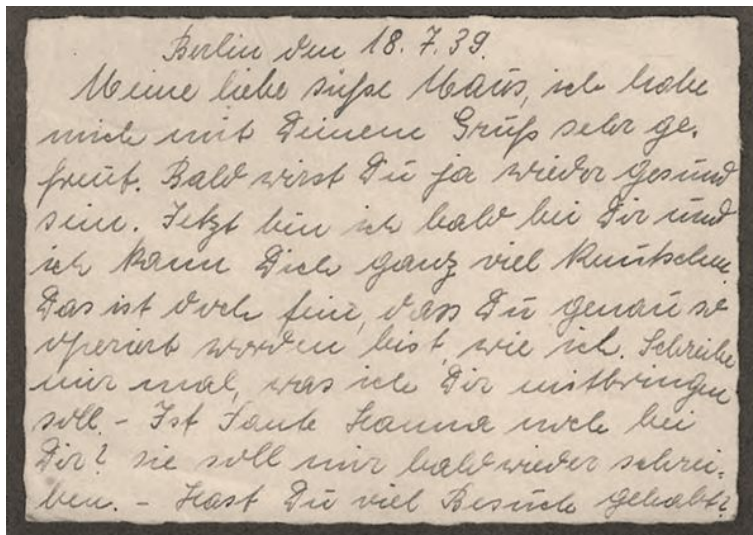 Berlin den 18.7.39.
Meine liebe süße Maus, ich habe
mich mit Deinem Gruß sehr ge-
freut. Bald wirst Du ja wieder gesund
sein. Jetzt bin ich bald bei Dir und
ich kann Dich ganz viel knutschen.
Das ist doch fein, dass Du genau so
operiert worden bist, wie ich. Schreibe
mir mal, was ich Dir mitbringen
soll. - Ist Tante Hanna noch bei
Dir? sie soll mir bald wieder schrei-
ben. - Hast Du viel Besuch gehabt?